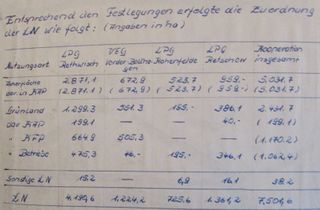 Entsprechend den Festlegungen erfolgte die Zuordnung
der LN wie folgt: (Angaben in ha)
LPG VEG LPG LPG Kooperation
Nutzungsart Rethwisch Hohenfelde Retschow insgesamt
2.871,1 672,9 523,7 959,- 5.031,7
dar. in KAP (2.871,1) (672,9) (523,7) (959,-) (5.031,7)
Grünland 1.299,3 551,3 195,- 386,1 2.431,7
dav. KAP 159,1 — 40,- (199,1)
" KFP 664,9 505,3 — (1.170,2)
" Betriebe 475,3 46,- 195,- 346,1 (1.062,4)
Sonstige LN 15,2 — 6,9 16,1 38,2
LN 4.185,6 1.224,2 725,6 1.361,2 7.501,6